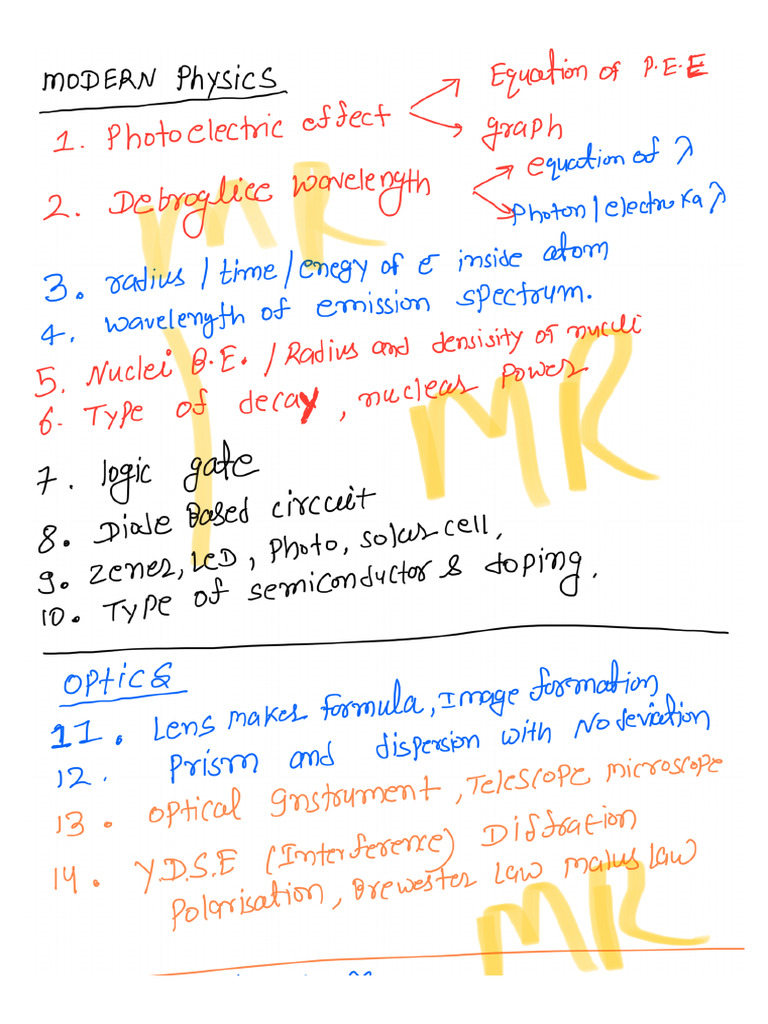 MODERN Physics
1. Photoelectric effect
Equation of P.E.E
graph
2. Debroglice wavelength
equation of λ
Photon / electro Ka λ
3. radius / time / enegy of e inside atom
4. wavelength of emission spectrum.
5. Nuclei B.E. / Radius and densisity of nucli
6. Type of decay, nuclear Power
7. logic gate
8. Diode Based circcuit
9. Zener, LED, Photo, Solar cell,
10. Type of semiconductor & doping.
Optics
11. Lens maker formula, Image formation
12. Prism and dispersion with No deviation
13. optical Instrument, Telescope microscope
14. Y.D.S.E (Interference) Diffration
Polarisation, Brewester Law Malus Law
MR
MR
MR